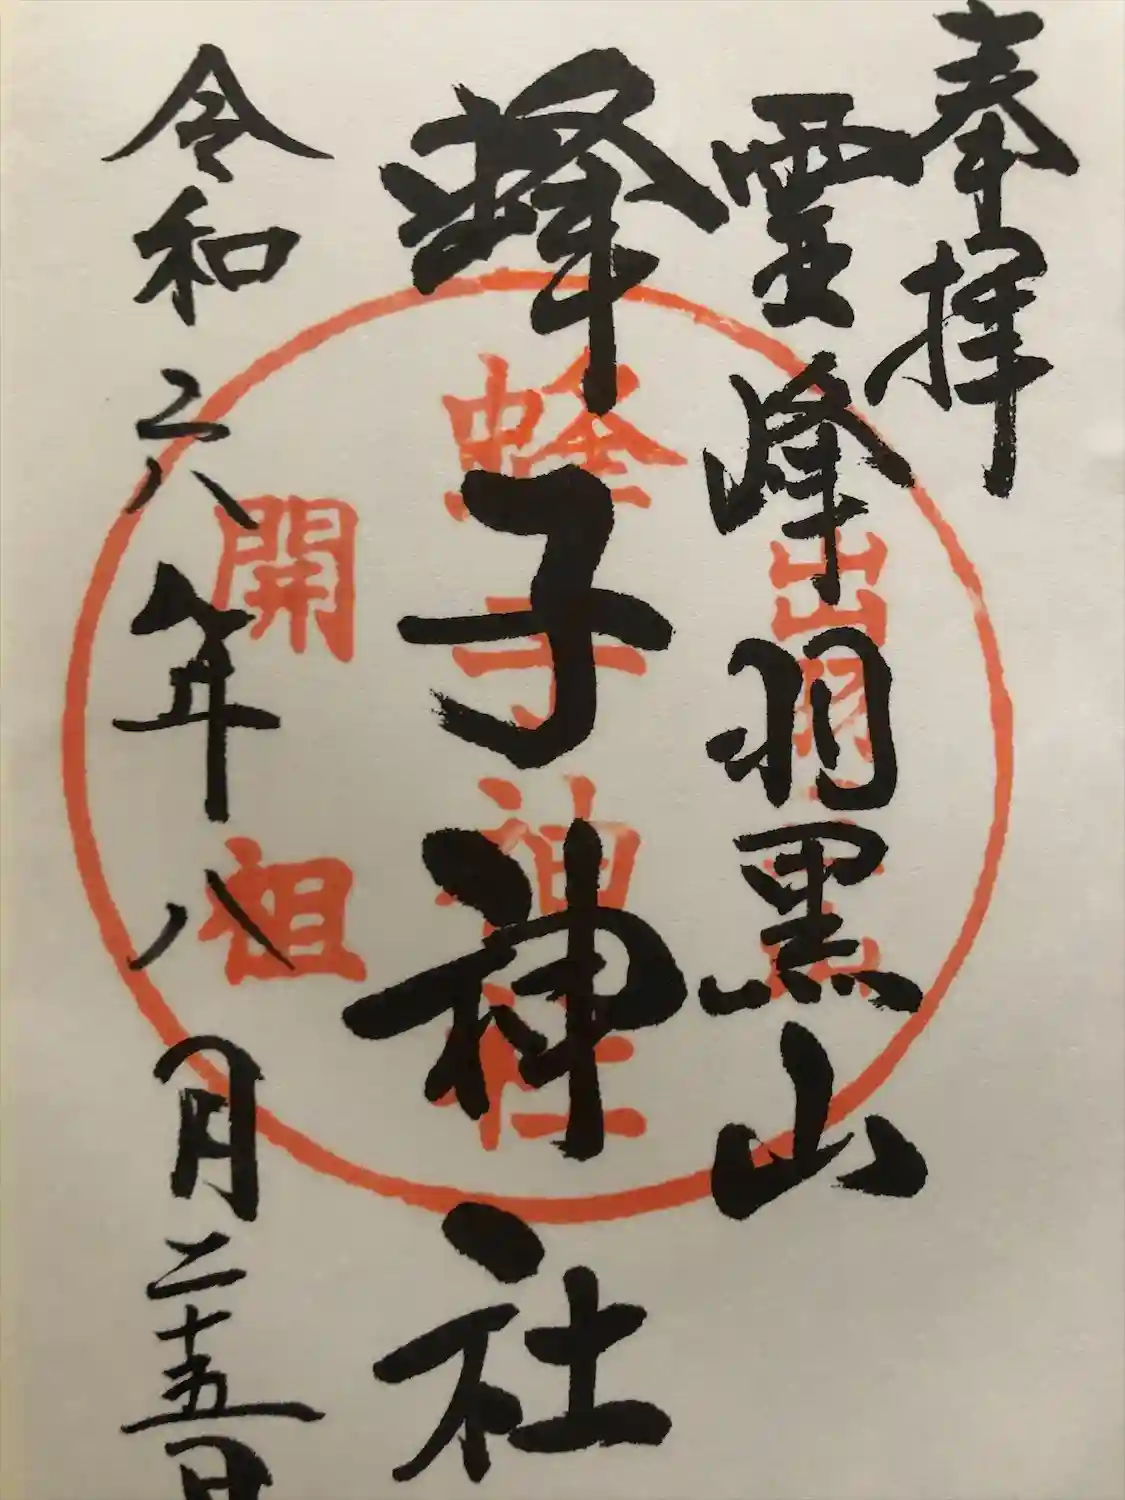 奉拝
霊峰羽黒山
蜂子神社
令和六年八月二十五日
出羽三山
蜂子神社
開祖